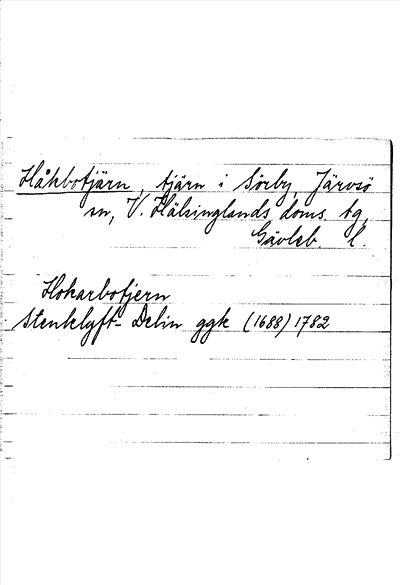 Håkbotjärn, tjärn i Sörby, Järvsö
sn, V. Hälsinglands doms. tg,
Gävleb. l.
Hokarbotjern
Stenklyft-Delin ggk (1688) 1782